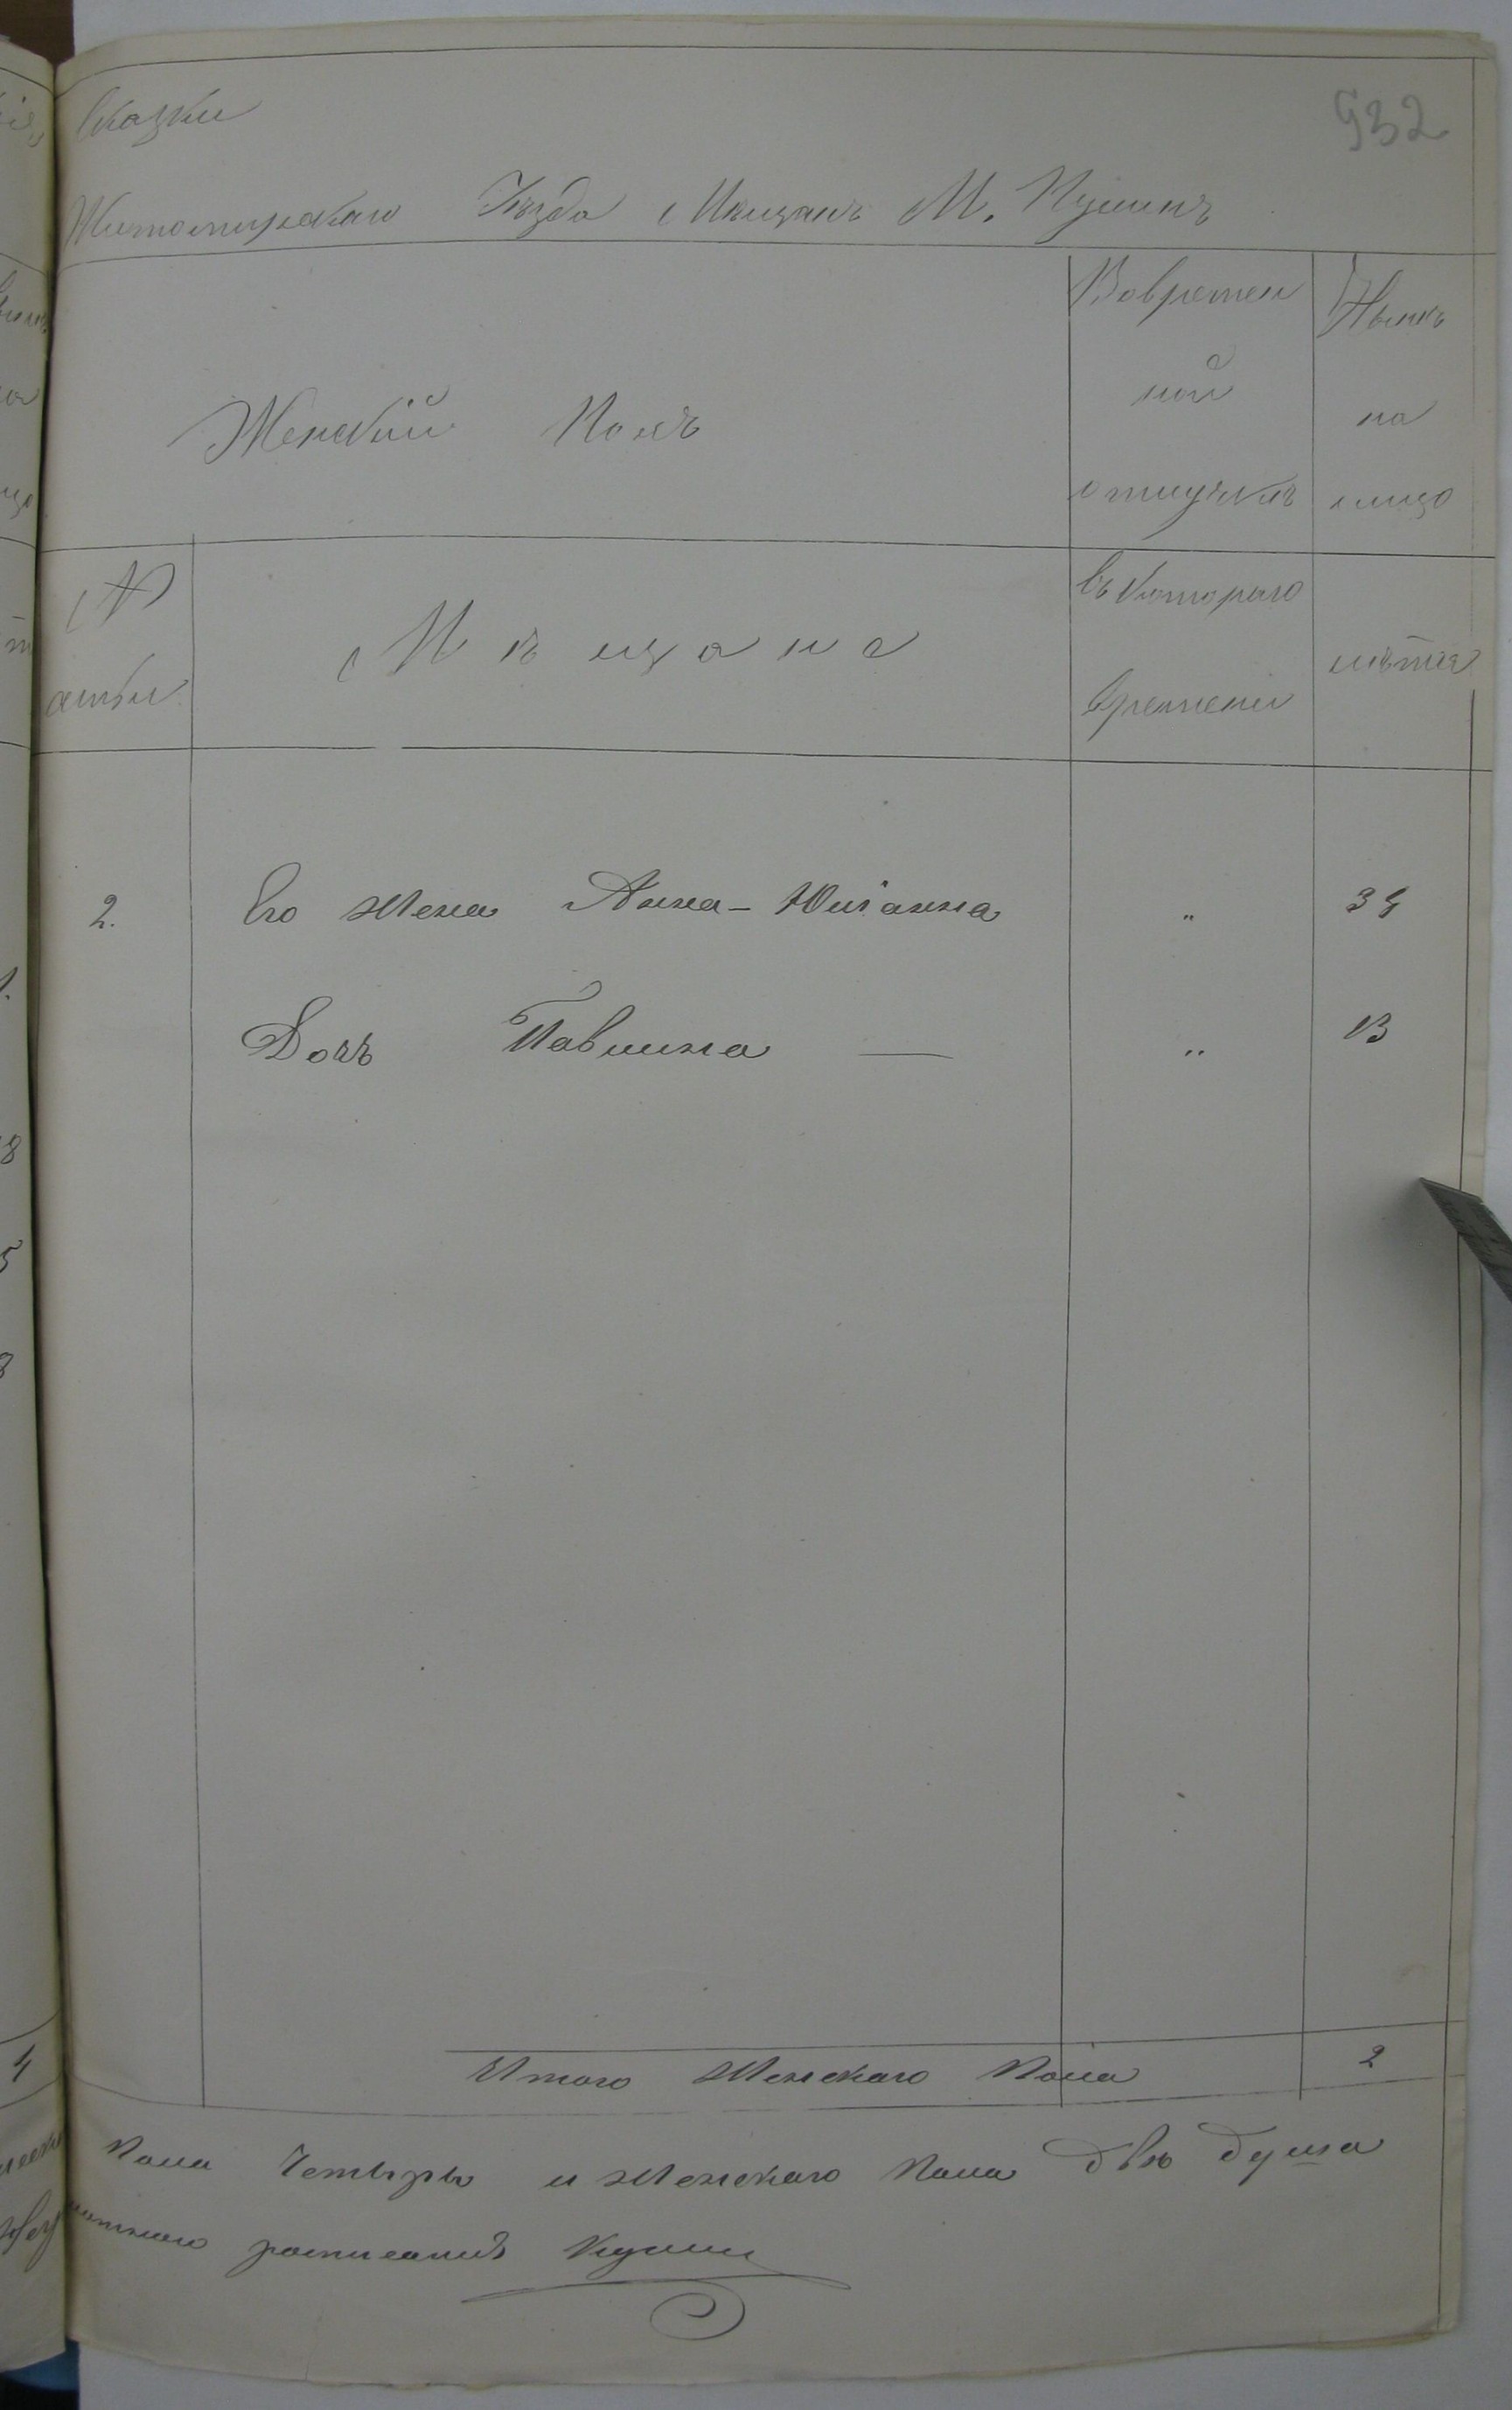 932
Сказки
Житомирскаго Уѣзда Мѣщанъ М. Пулинъ
Женскій Полъ
Вовремен
ной
отлучкѣ
Нынѣ
на
лицо
№
Мѣщане
Съ котораго
времени
лѣта
2. Его жена Анна-Юліанна " 34
Дочь Павлина — " 13
Итого женскаго пола 2
пола Четыре и женскаго пола двѣ душа
росписался